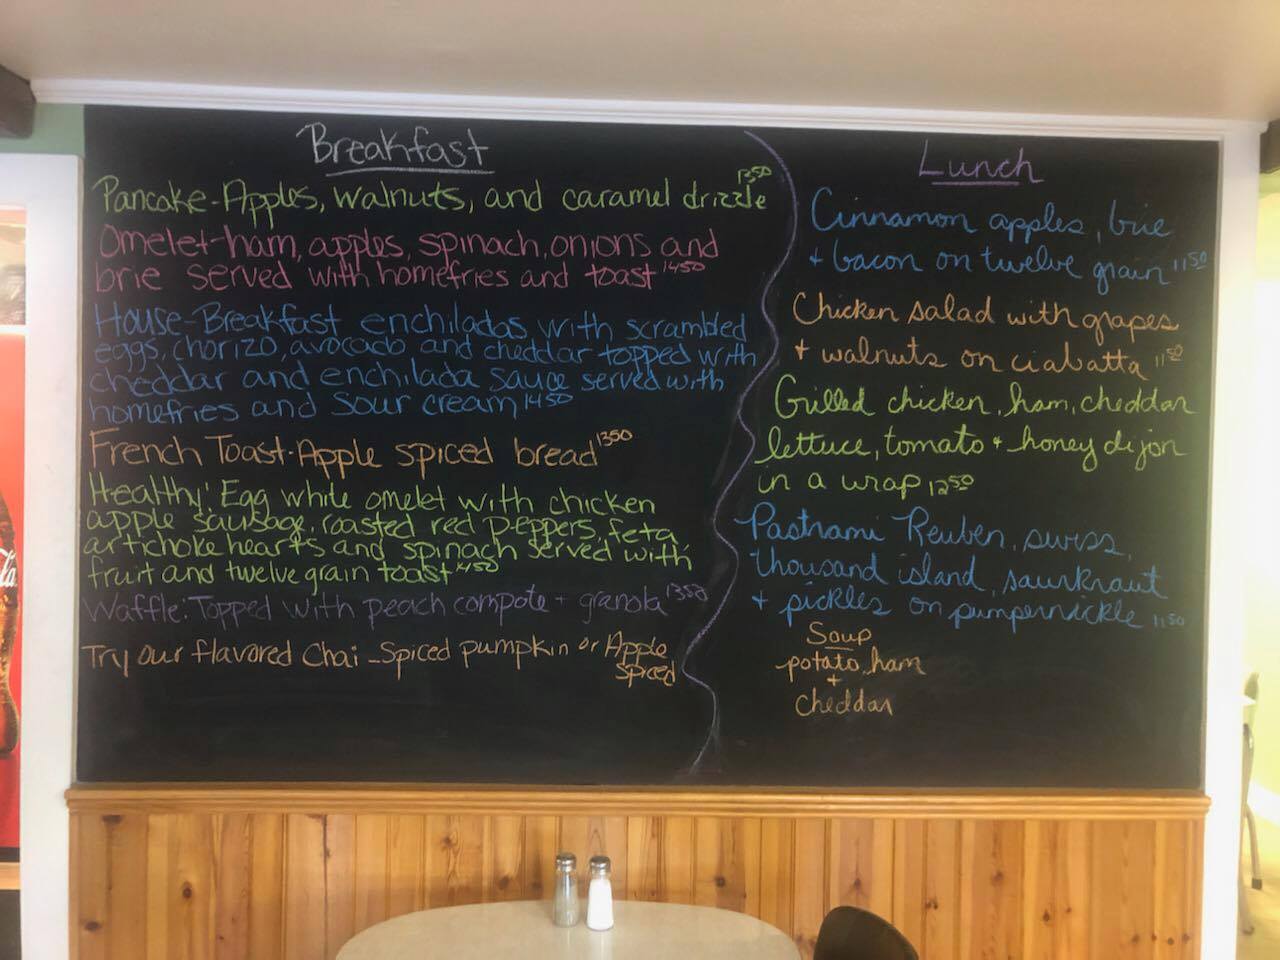 Breakfast
Pancake-Apples, walnuts, and caramel drizzle 1350
Omelet-ham, apples, spinach, onions and
brie served with homefries and toast 1450
House-Breakfast enchiladas with scrambled
eggs, chorizo, avocado and cheddar topped with
cheddar and enchilada sauce served with
homefries and sour cream 1450
French Toast-Apple spiced bread 1350
Healthy: Egg white omelet with chicken
apple sausage, roasted red peppers, feta
artichoke hearts and spinach served with
fruit and twelve grain toast 1450
Waffle: Topped with peach compote + granola 1350
Try our flavored Chai-Spiced pumpkin or Apple
Spiced
Lunch
Cinnamon apples, brie
+ bacon on twelve grain 1150
Chicken salad with grapes
+ walnuts on ciabatta 1150
Grilled chicken, ham, cheddar
lettuce, tomato + honey dijon
in a wrap 1250
Pastrami Reuben, swiss,
thousand island, saurkraut
+ pickles on pumpernickle 1150
Soup
potato, ham
+
cheddar